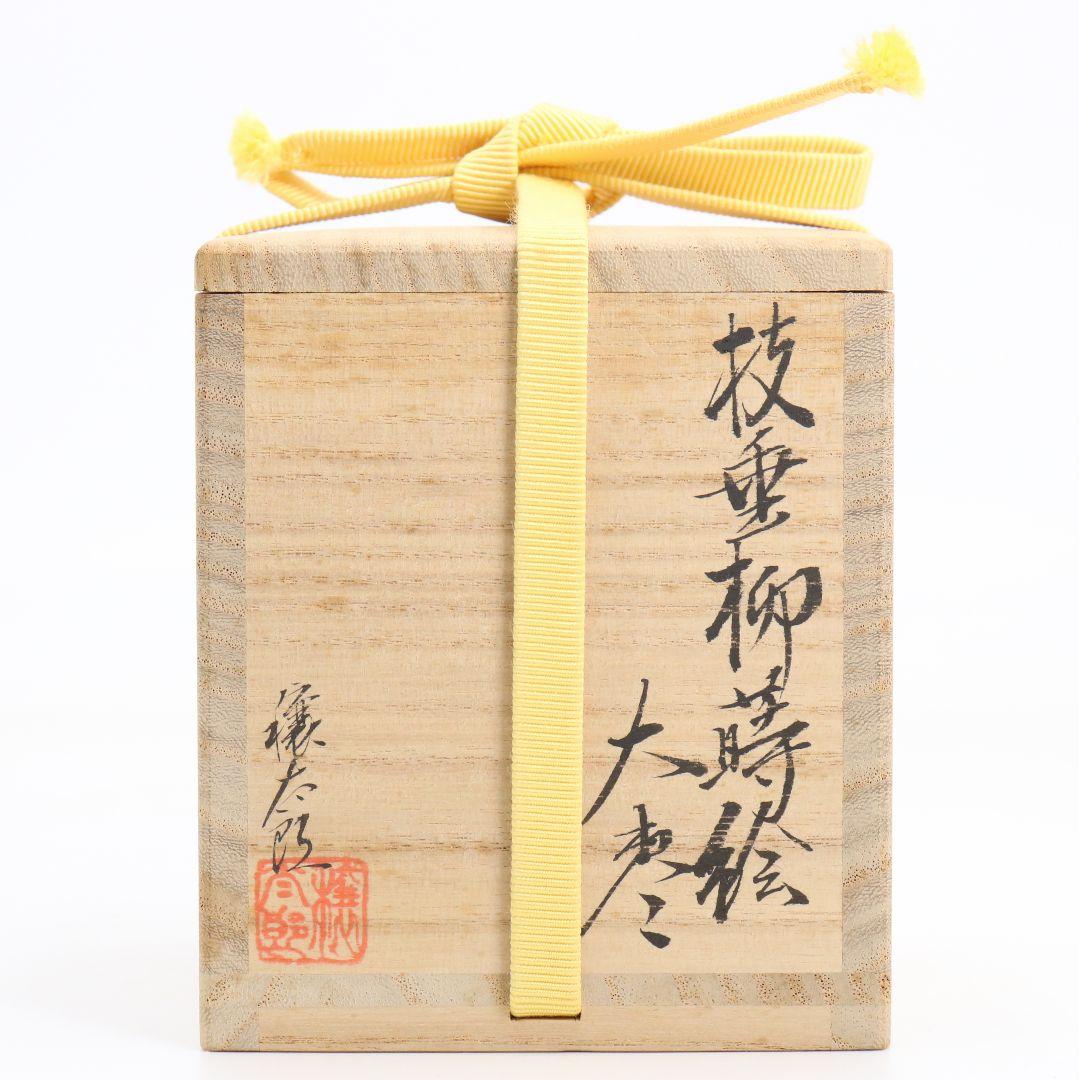 枝垂柳蒔絵
大棗
穣太郎